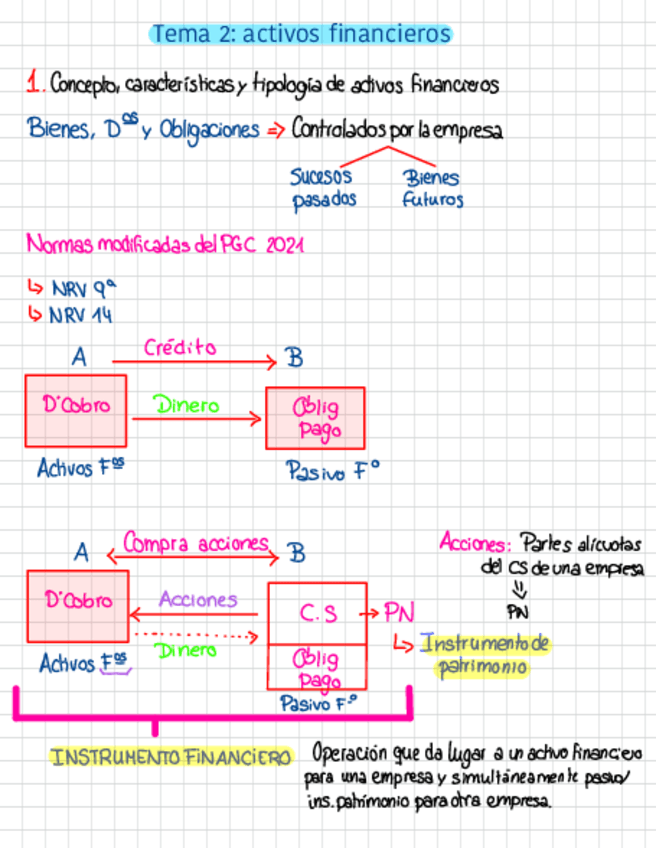 Tema 2: activos financieros
1. Concepto, características y tipología de activos financieros
Bienes, Dᵒˢ y Obligaciones => Controlados por la empresa
Sucesos pasados
Bienes futuros
Normas modificadas del PGC 2021
↳ NRV 9ª
↳ NRV 14
A Crédito B
D° Cobro Dinero Oblig Pago
Activos Fᵒˢ Pasivo F°
A Compra acciones B
D° Cobro Acciones C.S → PN
Dinero Oblig Pago
↳ Instrumento de patrimonio
Activos Fᵒˢ Pasivo F°
Acciones: Partes alícuotas
del CS de una empresa
⇓
PN
INSTRUMENTO FINANCIERO
Operación que da lugar a un activo financiero
para una empresa y simultáneamente pasivo/
ins. patrimonio para otra empresa.